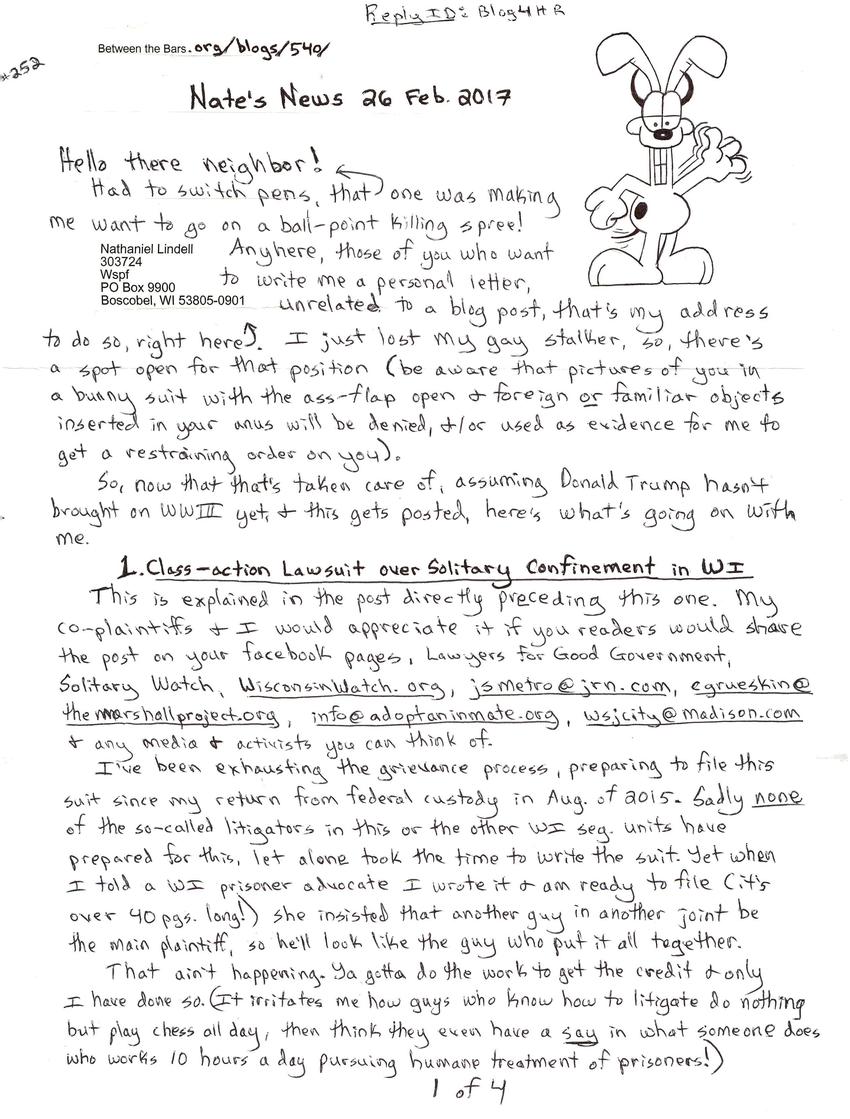 Reply ID: Blog4HR
Between the Bars.org/blogs/540/
#252
Nate's News 26 Feb. 2017
Hello there neighbor!
Had to switch pens, that one was making
me want to go on a ball-point killing spree!
Nathaniel Lindell
303724
Wspf
PO Box 9900
Boscobel, WI 53805-0901
Anyhere, those of you who want
to write me a personal letter,
unrelated to a blog post, that's my address
to do so, right here. I just lost my gay stalker, so, there's
a spot open for that position (be aware that pictures of you in
a bunny suit with the ass-flap open & foreign or familiar objects
inserted in your anus will be denied, &/or used as evidence for me to
get a restraining order on you).
So, now that that's taken care of, assuming Donald Trump hasn't
brought on WWIII yet, & this gets posted, here's what's going on with
me.
1. Class-action Lawsuit over Solitary Confinement in WI
This is explained in the post directly preceding this one. My
co-plaintiffs & I would appreciate it if you readers would share
the post on your facebook pages, Lawyers for Good Government,
Solitary Watch, WisconsinWatch.org, jsmetro@jrn.com, egrueskin@
themarshallproject.org, info@adoptaninmate.org, wsjcity@madison.com
& any media & activists you can think of.
I've been exhausting the grievance process, preparing to file this
suit since my return from federal custody in Aug. of 2015. Sadly none
of the so-called litigators in this or the other WI seg. units have
prepared for this, let alone took the time to write the suit. Yet when
I told a WI prisoner advocate I wrote it & am ready to file (it's
over 40 pgs. long!) she insisted that another guy in another joint be
the main plaintiff, so he'll look like the guy who put it all together.
That ain't happening. Ya gotta do the work to get the credit & only
I have done so. (It irritates me how guys who know how to litigate do nothing
but play chess all day, then think they even have a say in what someone does
who works 10 hours a day pursuing humane treatment of prisoners!)
1 of 4